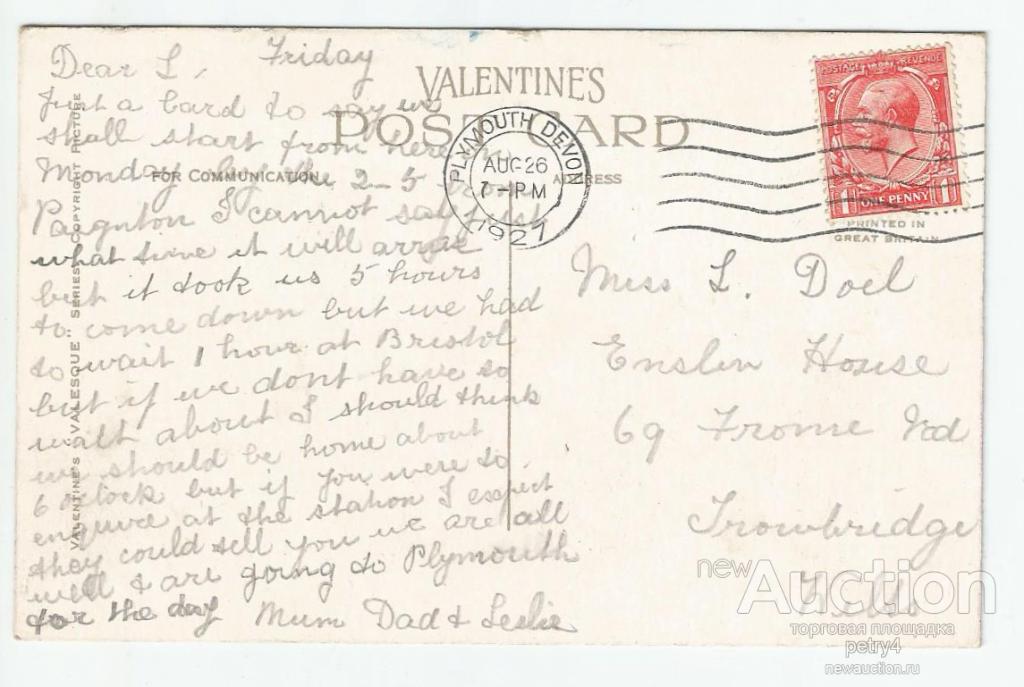 Dear L, Friday
Just a Card to say we
shall start from here on
Monday by the 2-5 from
Paignton I cannot say just
what time it will arrive
but it took us 5 hours
to come down but we had
to wait 1 hour at Bristol
but if we dont have so
wait about I should think
we should be home about
6 oclock but if you were to
enquire at the station I expect
they could tell you we are all
well & are going to Plymouth
for the day Mum Dad & Leslie
VALENTINE'S "VALESQUE" SERIES COPYRIGHT PICTURE
VALENTINE'S
POST CARD
FOR COMMUNICATION
ADDRESS
PLYMOUTH DEVON
AUG 26
7-PM
1927
POSTAGE REVENUE
1 ONE PENNY 1
PRINTED IN
GREAT BRITAIN
Miss L. Doel
Enslin House
69 Frome Rd
Trowbridge
Wilts
newAuction
торговая площадка
petry4
newauction.ru